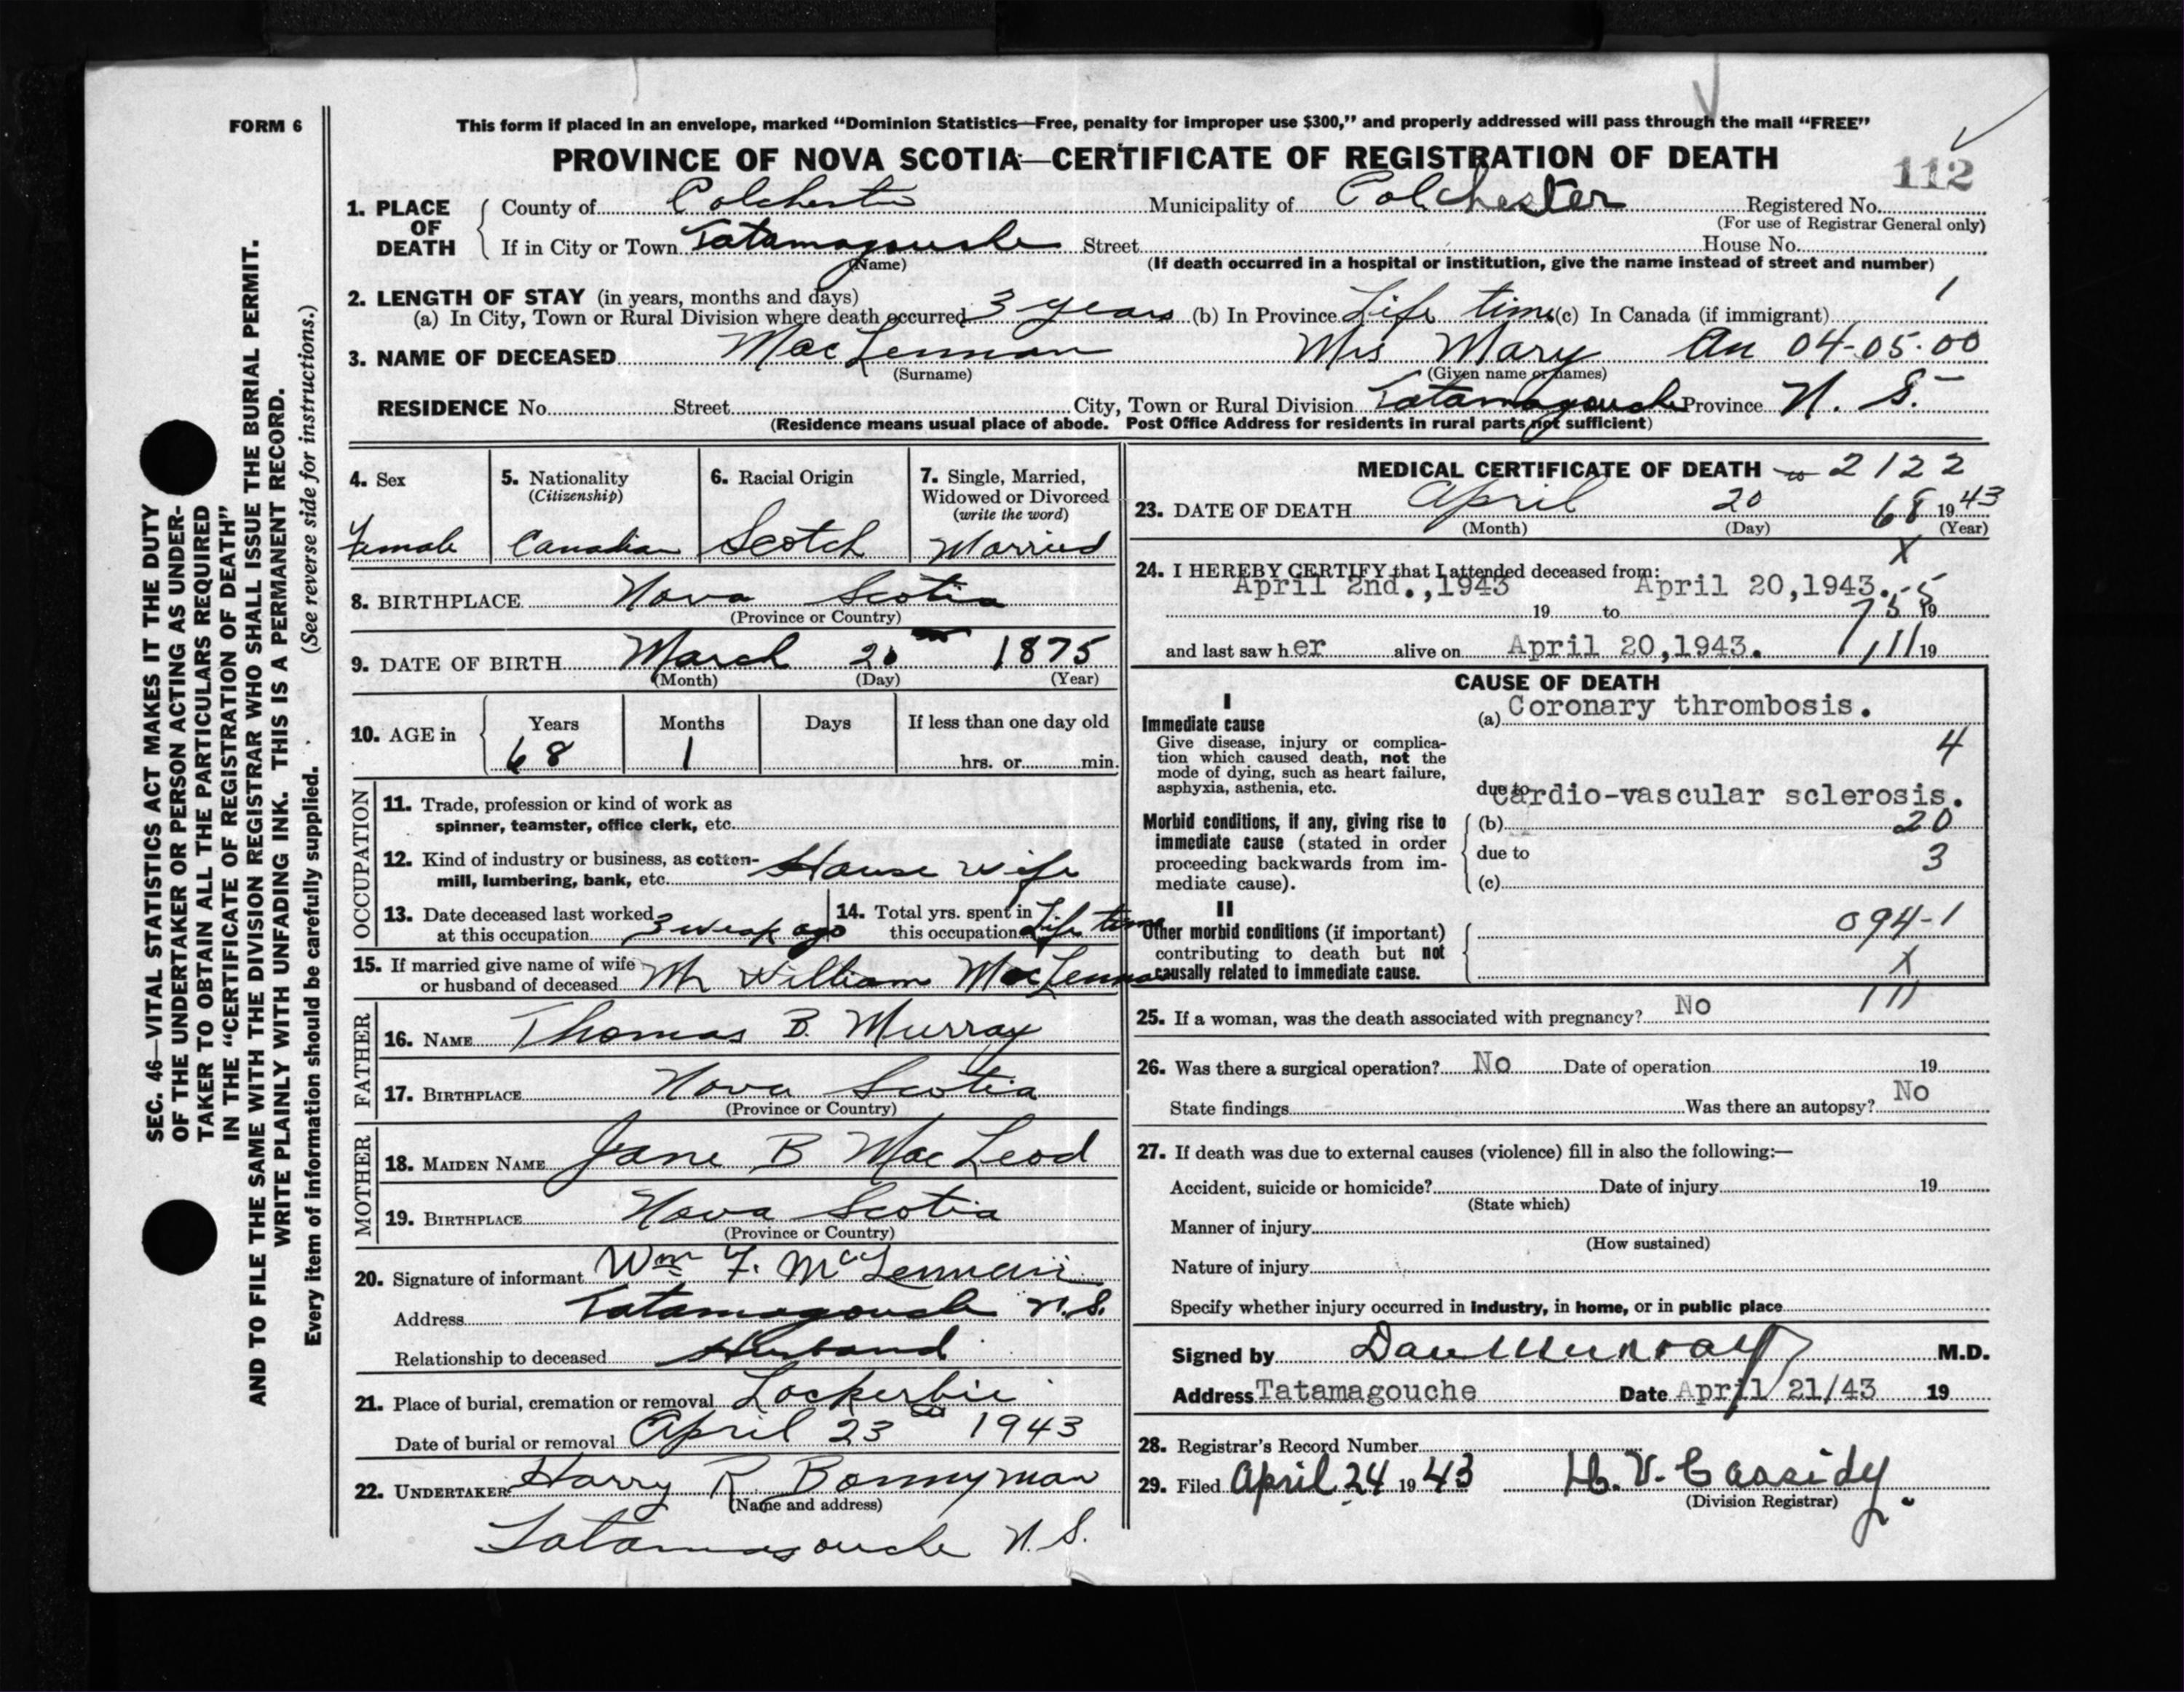 FORM 6
This form if placed in an envelope, marked "Dominion Statistics—Free, penalty for improper use $300," and properly addressed will pass through the mail "FREE"
PROVINCE OF NOVA SCOTIA—CERTIFICATE OF REGISTRATION OF DEATH
112
1. PLACE OF DEATH County of Colchester Municipality of Colchester Registered No.
(For use of Registrar General only)
If in City or Town Tatamagouche Street House No.
(Name) (If death occurred in a hospital or institution, give the name instead of street and number)
2. LENGTH OF STAY (in years, months and days)
(a) In City, Town or Rural Division where death occurred 3 years (b) In Province Life time (c) In Canada (if immigrant) 1
3. NAME OF DECEASED MacLennan Mrs Mary An 04-05-00
(Surname) (Given name or names)
RESIDENCE No. Street City, Town or Rural Division Tatamagouche Province N. S.
(Residence means usual place of abode. Post Office Address for residents in rural parts not sufficient)
SEC. 46—VITAL STATISTICS ACT MAKES IT THE DUTY
OF THE UNDERTAKER OR PERSON ACTING AS UNDER-
TAKER TO OBTAIN ALL THE PARTICULARS REQUIRED
IN THE "CERTIFICATE OF REGISTRATION OF DEATH"
AND TO FILE THE SAME WITH THE DIVISION REGISTRAR WHO SHALL ISSUE THE BURIAL PERMIT.
WRITE PLAINLY WITH UNFADING INK. THIS IS A PERMANENT RECORD.
Every item of information should be carefully supplied. (See reverse side for instructions.)
4. Sex 5. Nationality 6. Racial Origin 7. Single, Married,
(Citizenship) Widowed or Divorced
(write the word)
Female Canadian Scotch Married
8. BIRTHPLACE Nova Scotia
(Province or Country)
9. DATE OF BIRTH March 20 1875
(Month) (Day) (Year)
10. AGE in Years Months Days If less than one day old
68 1 hrs. or min.
OCCUPATION
11. Trade, profession or kind of work as
spinner, teamster, office clerk, etc.
12. Kind of industry or business, as cotton-
mill, lumbering, bank, etc. House wife
13. Date deceased last worked
at this occupation 3 weak ago
14. Total yrs. spent in
this occupation Life time
15. If married give name of wife
or husband of deceased Mr William MacLennan
FATHER
16. NAME Thomas B. Murray
17. BIRTHPLACE Nova Scotia
(Province or Country)
MOTHER
18. MAIDEN NAME Jane B MacLeod
19. BIRTHPLACE Nova Scotia
(Province or Country)
20. Signature of informant Wm F. McLennan
Address Tatamagouche N.S.
Relationship to deceased Husband
21. Place of burial, cremation or removal Lockerbie
Date of burial or removal April 23 1943
22. UNDERTAKER Harry R Bonnyman
(Name and address)
Tatamagouche N.S.
MEDICAL CERTIFICATE OF DEATH 2122
23. DATE OF DEATH April 20 68 1943
(Month) (Day) (Year)
X
24. I HEREBY CERTIFY that I attended deceased from:
April 2nd.,1943 April 20,1943.
19 to 19
and last saw her alive on April 20,1943. 19
CAUSE OF DEATH
I
Immediate cause
Give disease, injury or complica-
tion which caused death, not the
mode of dying, such as heart failure,
asphyxia, asthenia, etc.
(a) Coronary thrombosis.
4
due to Cardio-vascular sclerosis.
Morbid conditions, if any, giving rise to
immediate cause (stated in order
proceeding backwards from im-
mediate cause).
(b) 20
due to 3
(c)
II
Other morbid conditions (if important)
contributing to death but not
causally related to immediate cause.
094-1
X
111
25. If a woman, was the death associated with pregnancy? No
26. Was there a surgical operation? No Date of operation 19
State findings Was there an autopsy? No
27. If death was due to external causes (violence) fill in also the following:—
Accident, suicide or homicide? Date of injury 19
(State which)
Manner of injury
(How sustained)
Nature of injury
Specify whether injury occurred in industry, in home, or in public place
Signed by Dan Murray M.D.
Address Tatamagouche Date April 21/43 19
28. Registrar's Record Number
29. Filed April 24 1943 H. V. Cassidy.
(Division Registrar)